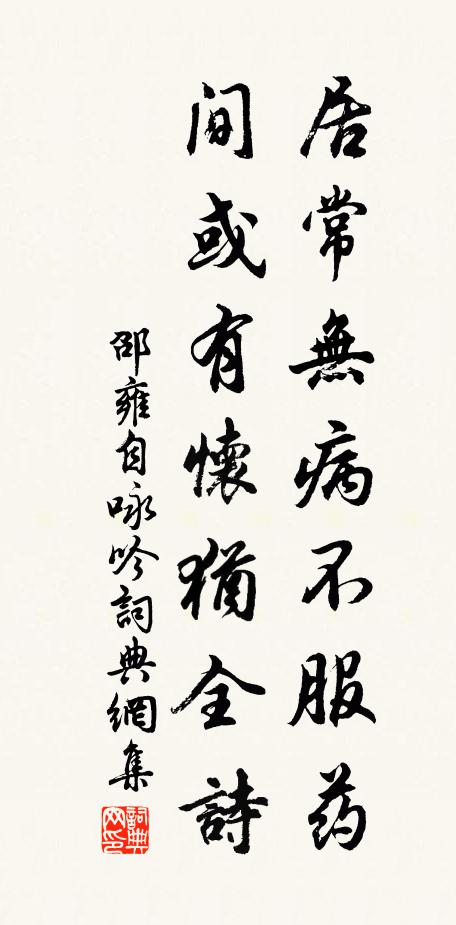 居常無病不服药
间或有懷猶全詩
邵雍自咏吟詞典網集
詞典网印